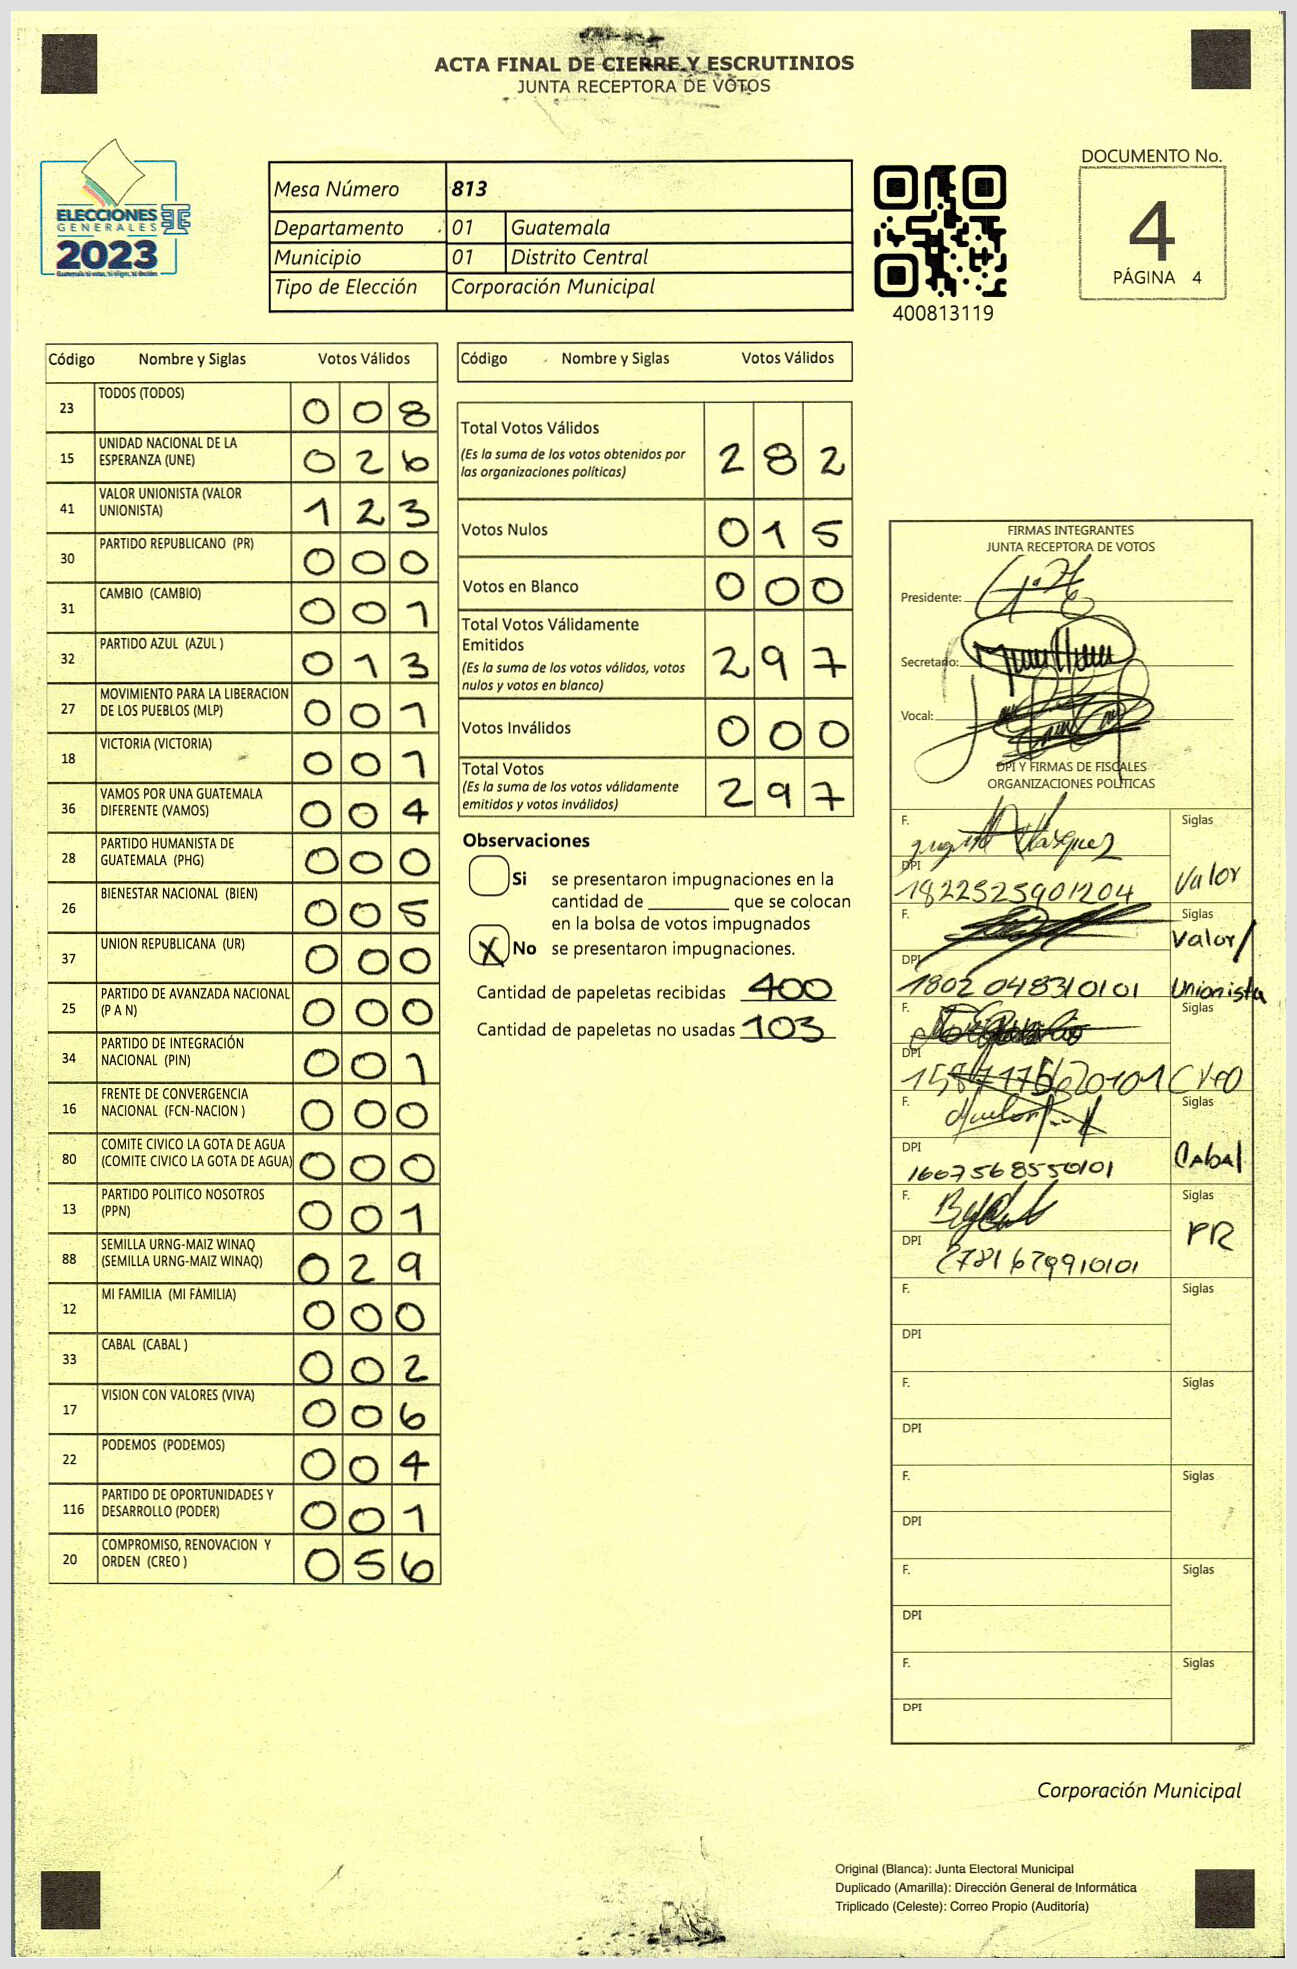 ACTA FINAL DE CIERRE Y ESCRUTINIOS
JUNTA RECEPTORA DE VOTOS
ELECCIONES
GENERALES
2023
Mesa Número 813
Departamento 01 Guatemala
Municipio 01 Distrito Central
Tipo de Elección Corporación Municipal
400813119
DOCUMENTO No.
4
PÁGINA 4
Código Nombre y Siglas Votos Válidos
23 TODOS (TODOS) 0 0 8
15 UNIDAD NACIONAL DE LA
ESPERANZA (UNE) 0 2 6
41 VALOR UNIONISTA (VALOR
UNIONISTA) 1 2 3
30 PARTIDO REPUBLICANO (PR) 0 0 0
31 CAMBIO (CAMBIO) 0 0 1
32 PARTIDO AZUL (AZUL ) 0 1 3
27 MOVIMIENTO PARA LA LIBERACION
DE LOS PUEBLOS (MLP) 0 0 1
18 VICTORIA (VICTORIA) 0 0 1
36 VAMOS POR UNA GUATEMALA
DIFERENTE (VAMOS) 0 0 4
28 PARTIDO HUMANISTA DE
GUATEMALA (PHG) 0 0 0
26 BIENESTAR NACIONAL (BIEN) 0 0 5
37 UNION REPUBLICANA (UR) 0 0 0
25 PARTIDO DE AVANZADA NACIONAL
(P A N) 0 0 0
34 PARTIDO DE INTEGRACIÓN
NACIONAL (PIN) 0 0 1
16 FRENTE DE CONVERGENCIA
NACIONAL (FCN-NACION ) 0 0 0
80 COMITE CIVICO LA GOTA DE AGUA
(COMITE CIVICO LA GOTA DE AGUA) 0 0 0
13 PARTIDO POLITICO NOSOTROS
(PPN) 0 0 1
88 SEMILLA URNG-MAIZ WINAQ
(SEMILLA URNG-MAIZ WINAQ) 0 2 9
12 MI FAMILIA (MI FAMILIA) 0 0 0
33 CABAL (CABAL ) 0 0 2
17 VISION CON VALORES (VIVA) 0 0 6
22 PODEMOS (PODEMOS) 0 0 4
116 PARTIDO DE OPORTUNIDADES Y
DESARROLLO (PODER) 0 0 1
20 COMPROMISO, RENOVACION Y
ORDEN (CREO ) 0 5 6
Código Nombre y Siglas Votos Válidos
Total Votos Válidos 2 8 2
(Es la suma de los votos obtenidos por
las organizaciones políticas)
Votos Nulos 0 1 5
Votos en Blanco 0 0 0
Total Votos Válidamente
Emitidos 2 9 7
(Es la suma de los votos válidos, votos
nulos y votos en blanco)
Votos Inválidos 0 0 0
Total Votos 2 9 7
(Es la suma de los votos válidamente
emitidos y votos inválidos)
Observaciones
Si se presentaron impugnaciones en la
cantidad de ________ que se colocan
en la bolsa de votos impugnados
X No se presentaron impugnaciones.
Cantidad de papeletas recibidas 400
Cantidad de papeletas no usadas 103
FIRMAS INTEGRANTES
JUNTA RECEPTORA DE VOTOS
Presidente:
Secretario:
Vocal:
DPI Y FIRMAS DE FISCALES
ORGANIZACIONES POLITICAS
F. Siglas
DPI
1822525901204 Valor
F. Siglas
Valor/
DPI
1802048310101 Unionista
F. Siglas
DPI
F. Siglas
DPI Cabal
1607568550101
F. Siglas
PR
DPI
2781679910101
F. Siglas
DPI
F. Siglas
DPI
F. Siglas
DPI
F. Siglas
DPI
F. Siglas
DPI
Corporación Municipal
Original (Blanca): Junta Electoral Municipal
Duplicado (Amarilla): Dirección General de Informática
Triplicado (Celeste): Correo Propio (Auditoría)